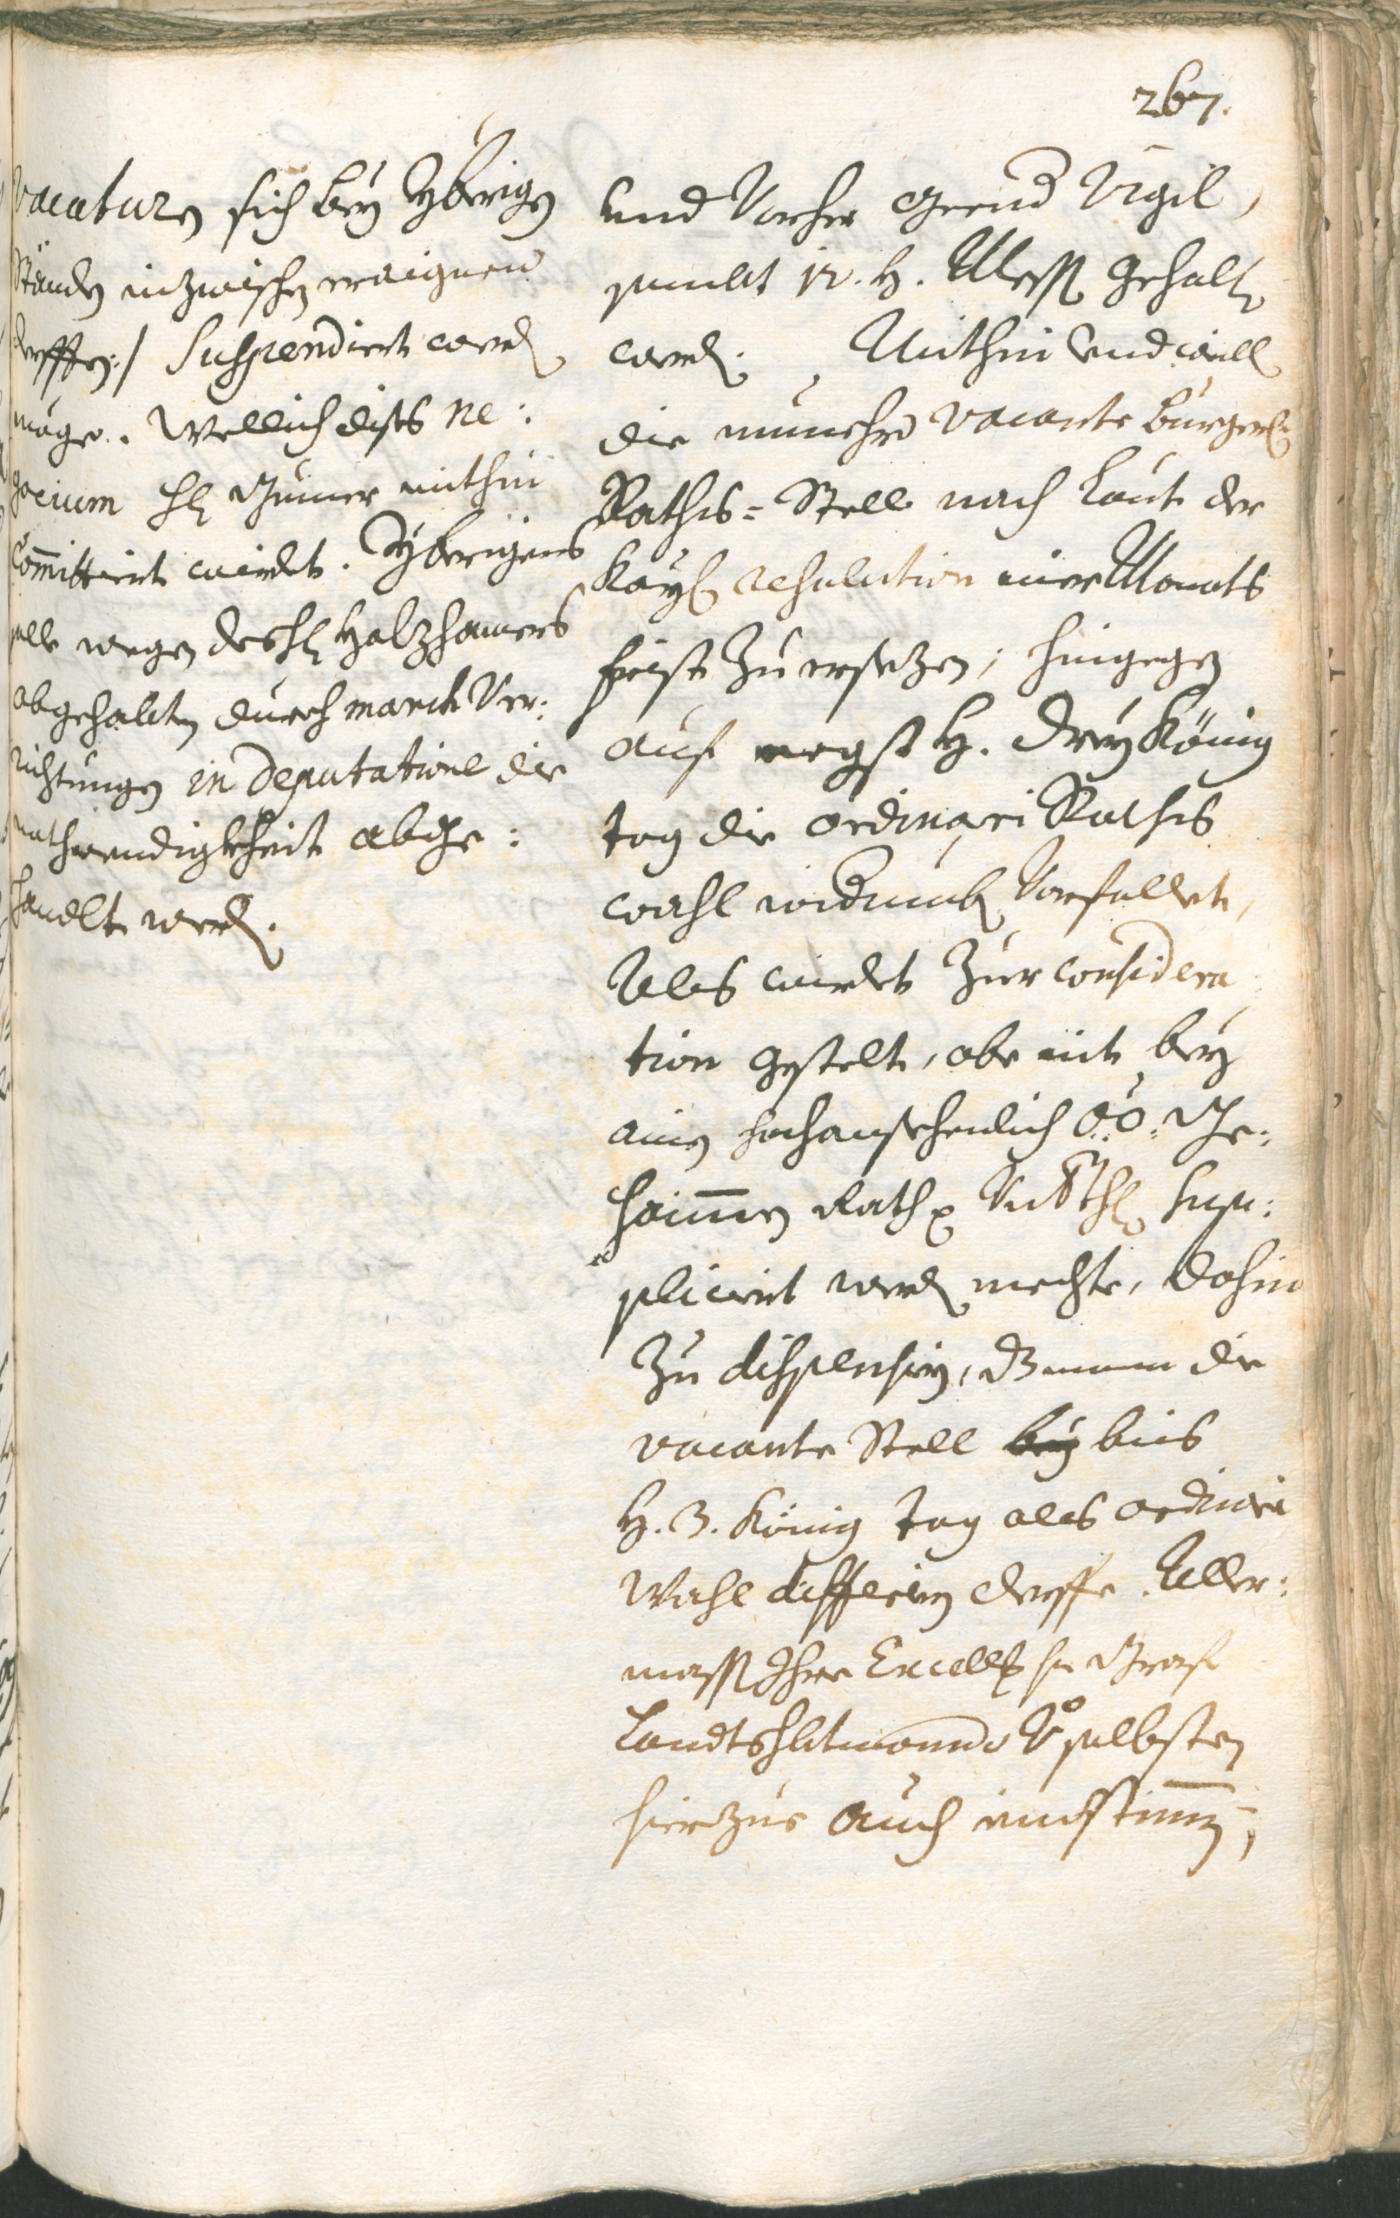 267.
vacaturn sich bey Ybrigen
Ständen inzwischen eraignen
derffen :/ Suspendirt werden
möge. Wellich dises ne:
gocium H: Gumer mithin
Committirt wirdet. Yberigens
solle wegen des H: Holzhamers
abgehalten durch marckt Ver:
richtungen in Deputatione die
nothwendigkheit abge:
handlt werden.
und Vorher Vigil,
sambt 12. H. Mess gehalten
werden. Mithin und weill
die nunmehro vacante burgerl:
Raths=Stell nach laut der
Kayl: resolution iner Monats
frist zu ersezen; hingegen
auf negst H. drey König
tag die ordinari Raths
wahl widrumb Vorfallet,
Als wirdet zur considera
tion gestelt, ob nit bey
ainen hochansehenlich O: Ö: Ge:
haimmen Rath sup:
plicirt werden mechte, dahin
zu dispensirn, dz mann die
vacante Stell bey bis
H. 3. König tag als ordinari
Wahl differirn derffe. Aller:
mass Ihre Excell: Hr Graf
Landtshbtmann selbsten
hierzue auch einstimmen,